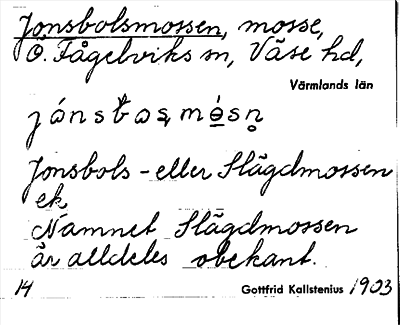 Jonsbolsmossen, mosse,
Ö. Fågelviks sn, Väse hd,
Värmlands län
Jonsbols- eller Slägdmossen
ek.
Namnet Slägdmossen
är alldeles obekant.
14 Gottfrid Kallstenius 1903